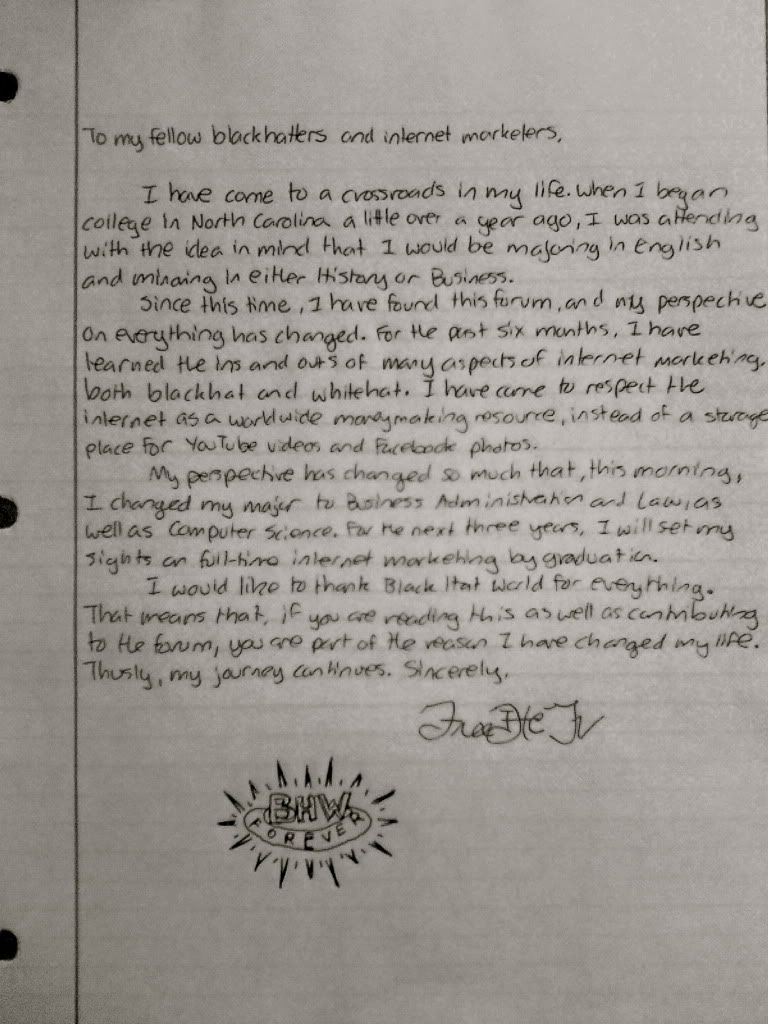 To my fellow blackhatters and internet marketers,
I have come to a crossroads in my life. When I began
college in North Carolina a little over a year ago, I was attending
with the idea in mind that I would be majoring in English
and minoring in either History or Business.
Since this time, I have found this forum, and my perspective
on everything has changed. For the past six months, I have
learned the ins and outs of many aspects of internet marketing,
both blackhat and whitehat. I have come to respect the
internet as a worldwide moneymaking resource, instead of a storage
place for YouTube videos and Facebook photos.
My perspective has changed so much that, this morning,
I changed my major to Business Administration and Law, as
well as Computer Science. For the next three years, I will set my
sights on full-time internet marketing by graduation.
I would like to thank Black Hat World for everything.
That means that, if you are reading this as well as contributing
to the forum, you are part of the reason I have changed my life.
Thusly, my journey continues. Sincerely,
BHW
FOREVER